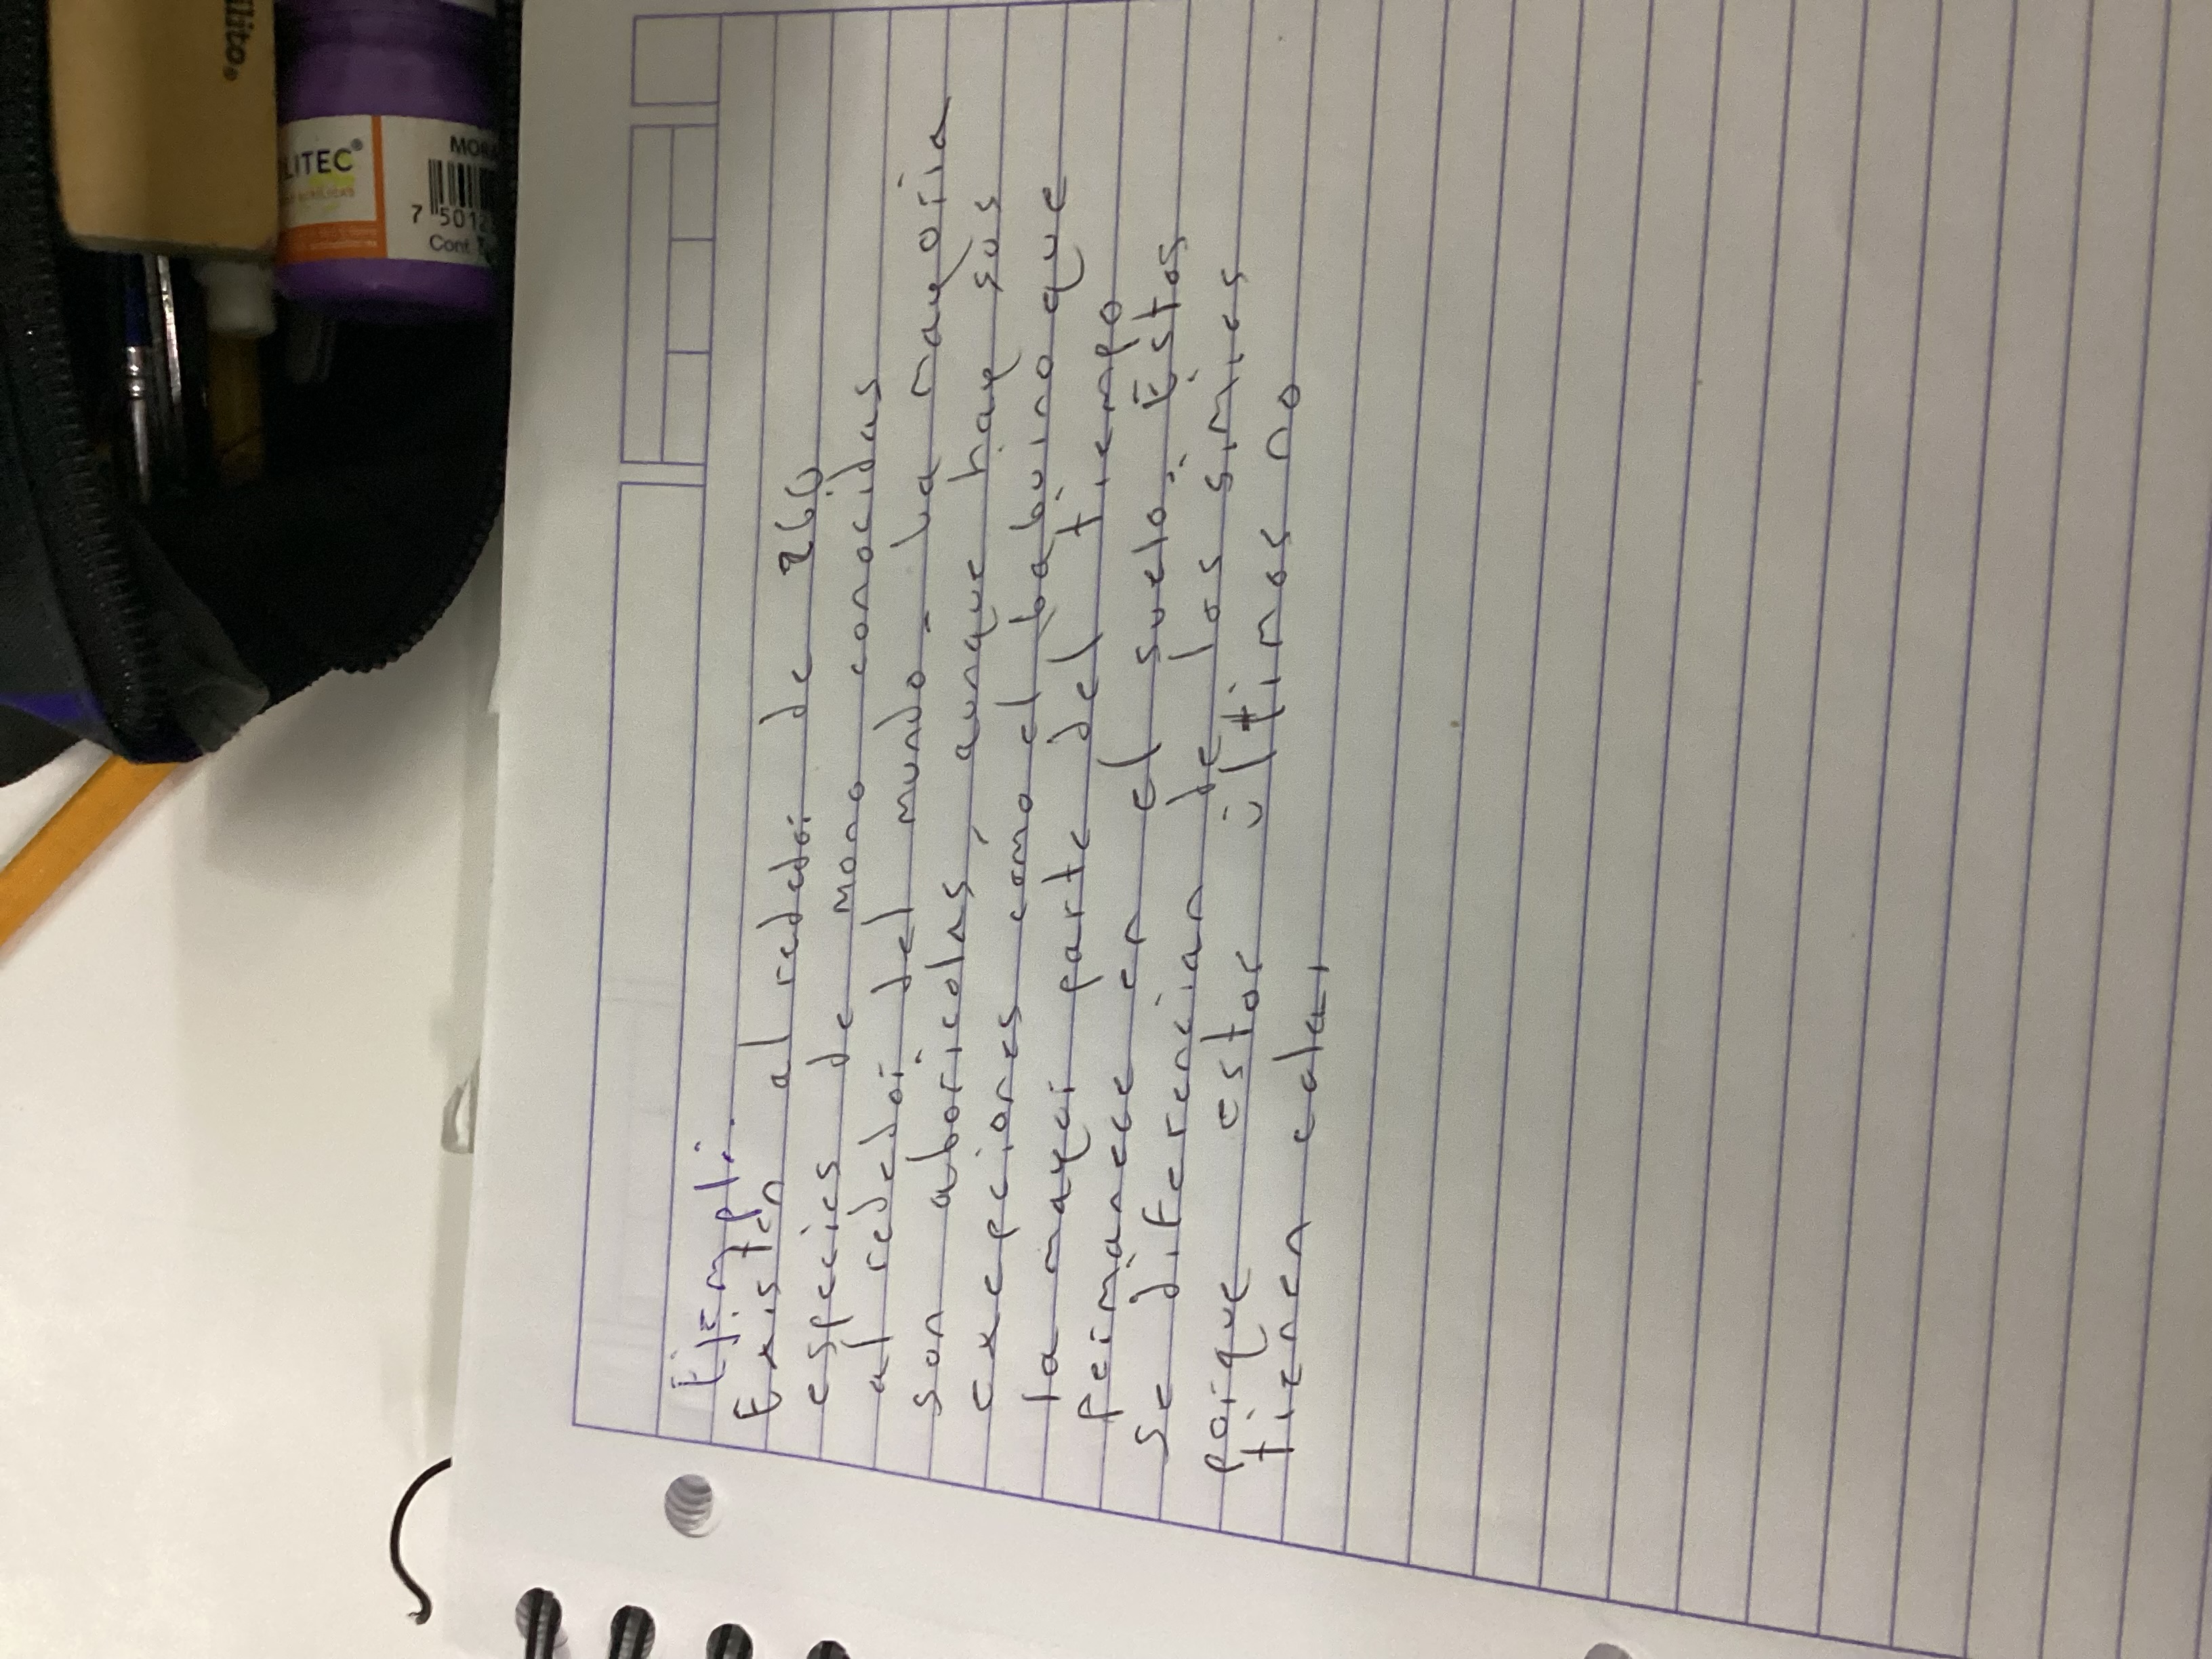 Ejemplo.
Existen al rededor de 260
especies de mono conocidas
al rededor del mundo. La mayoria
son aboricolas, aunque hay sus
excepciones como el babuino que
la mayor parte del tiempo
permanece en el suelo. Estos
se diferencian de los simios
porque estos últimos no
tienen cola.
llito.
LITEC®
MORA
7 5012
Cont.